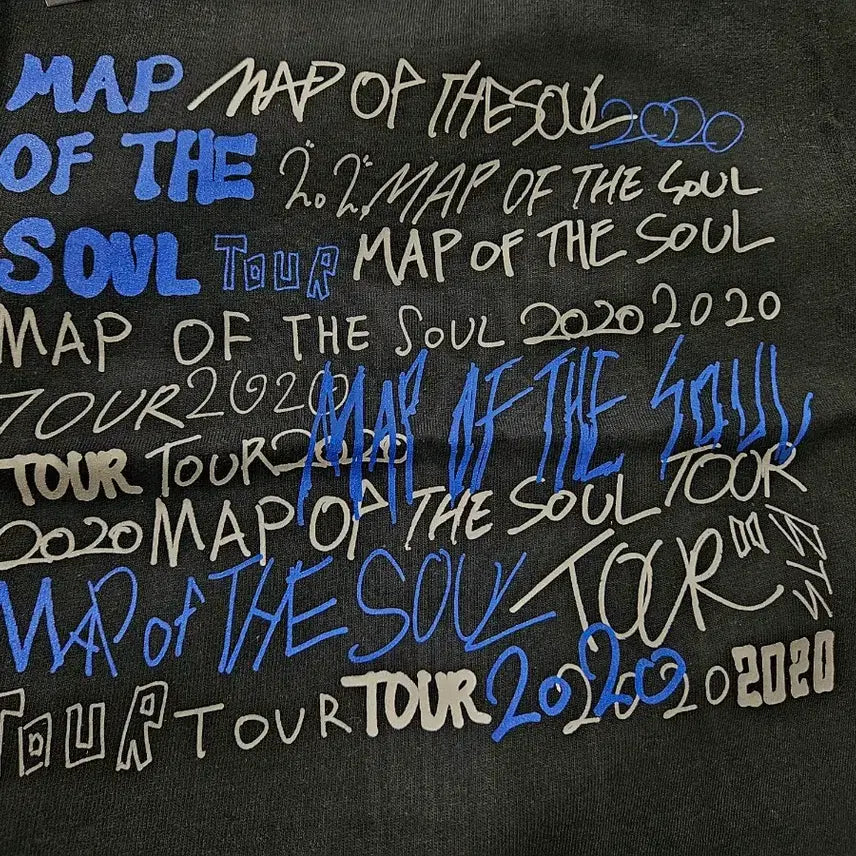 MAP MAP OF THE SOUL 2020
OF THE 2.2. MAP OF THE SOUL
SOUL TOUR MAP OF THE SOUL
MAP OF THE SOUL 2020 2020
TOUR 2020 MAP OF THE SOUL
TOUR TOUR 2020
2020 MAP OF THE SOUL TOUR
MAP OF THE SOUL TOUR BTS
TOUR TOUR TOUR 2020 2020 2020